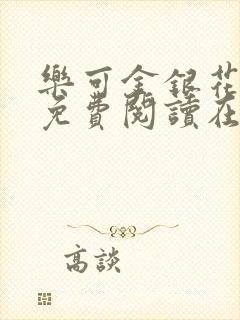 樂可金銀花
免費閱讀在
高談